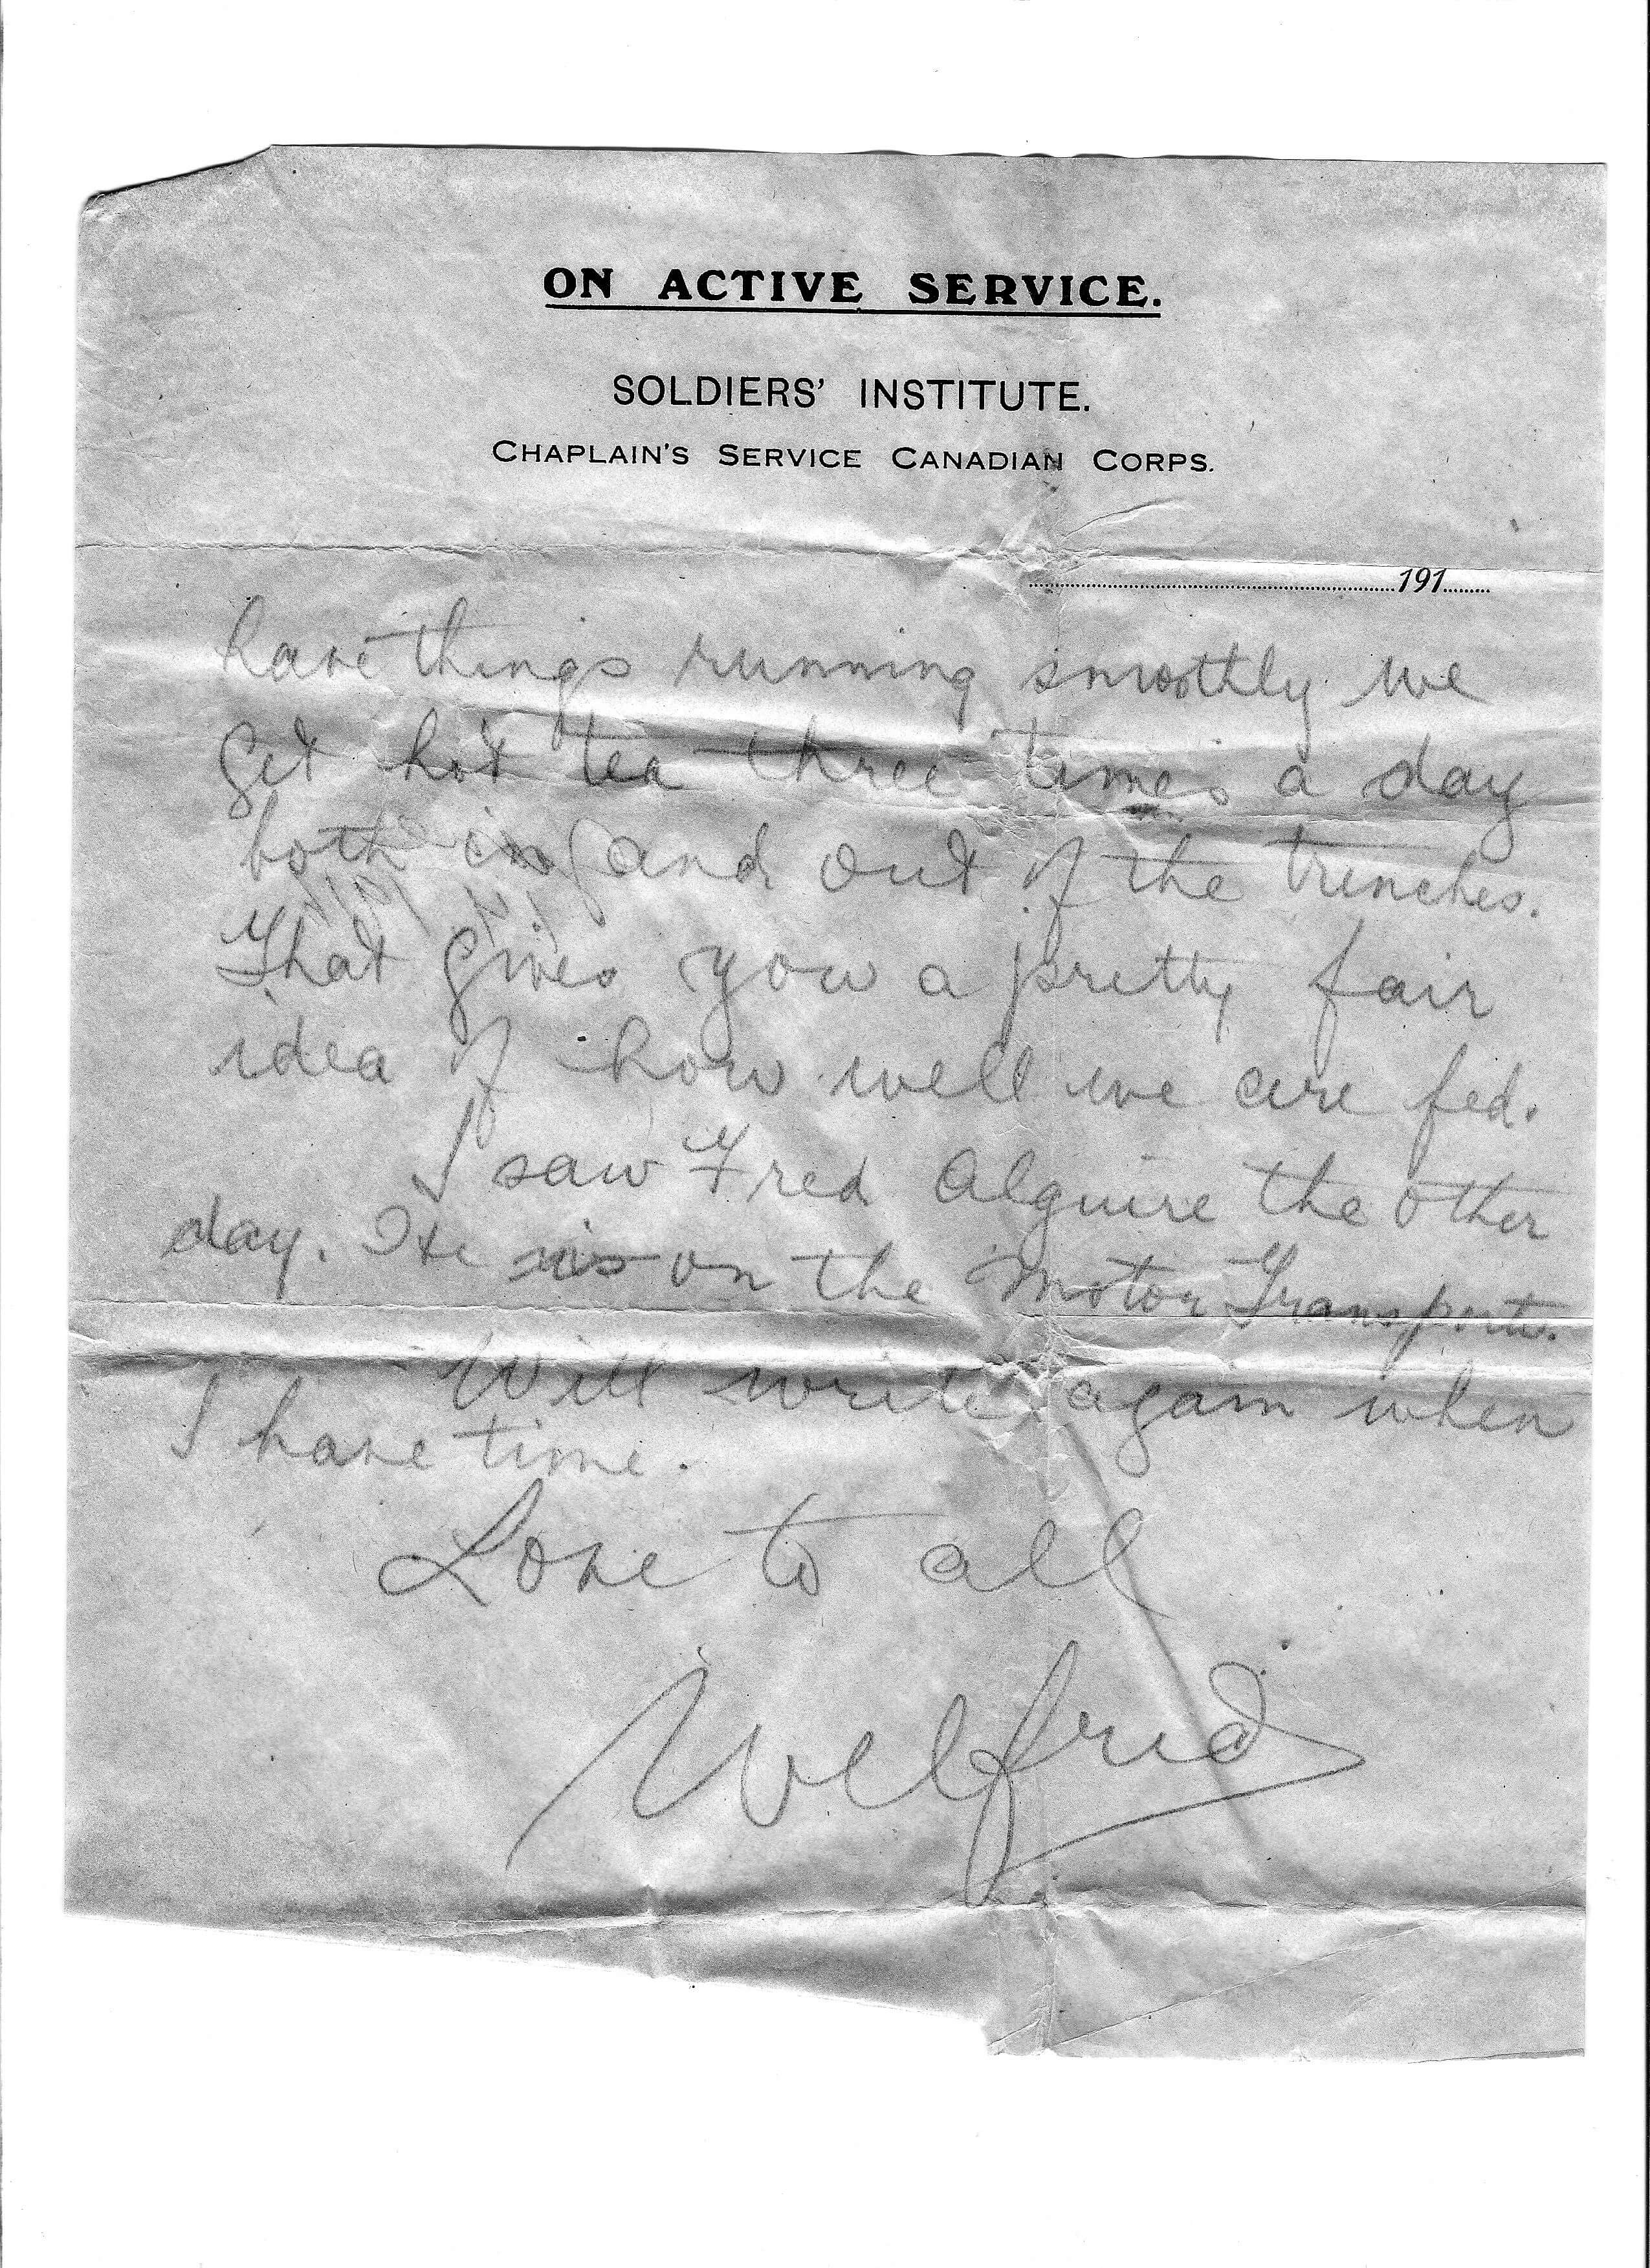 ON ACTIVE SERVICE.
SOLDIERS' INSTITUTE.
CHAPLAIN'S SERVICE CANADIAN CORPS.
191
have things running smoothly we
get hot tea three times a day
both in and out of the trenches.
That gives you a pretty fair
idea of how well we are fed.
I saw Fred Alguire the other
day. He is on the Motor Transports.
Will write again when
I have time.
Love to all
Wilfrid